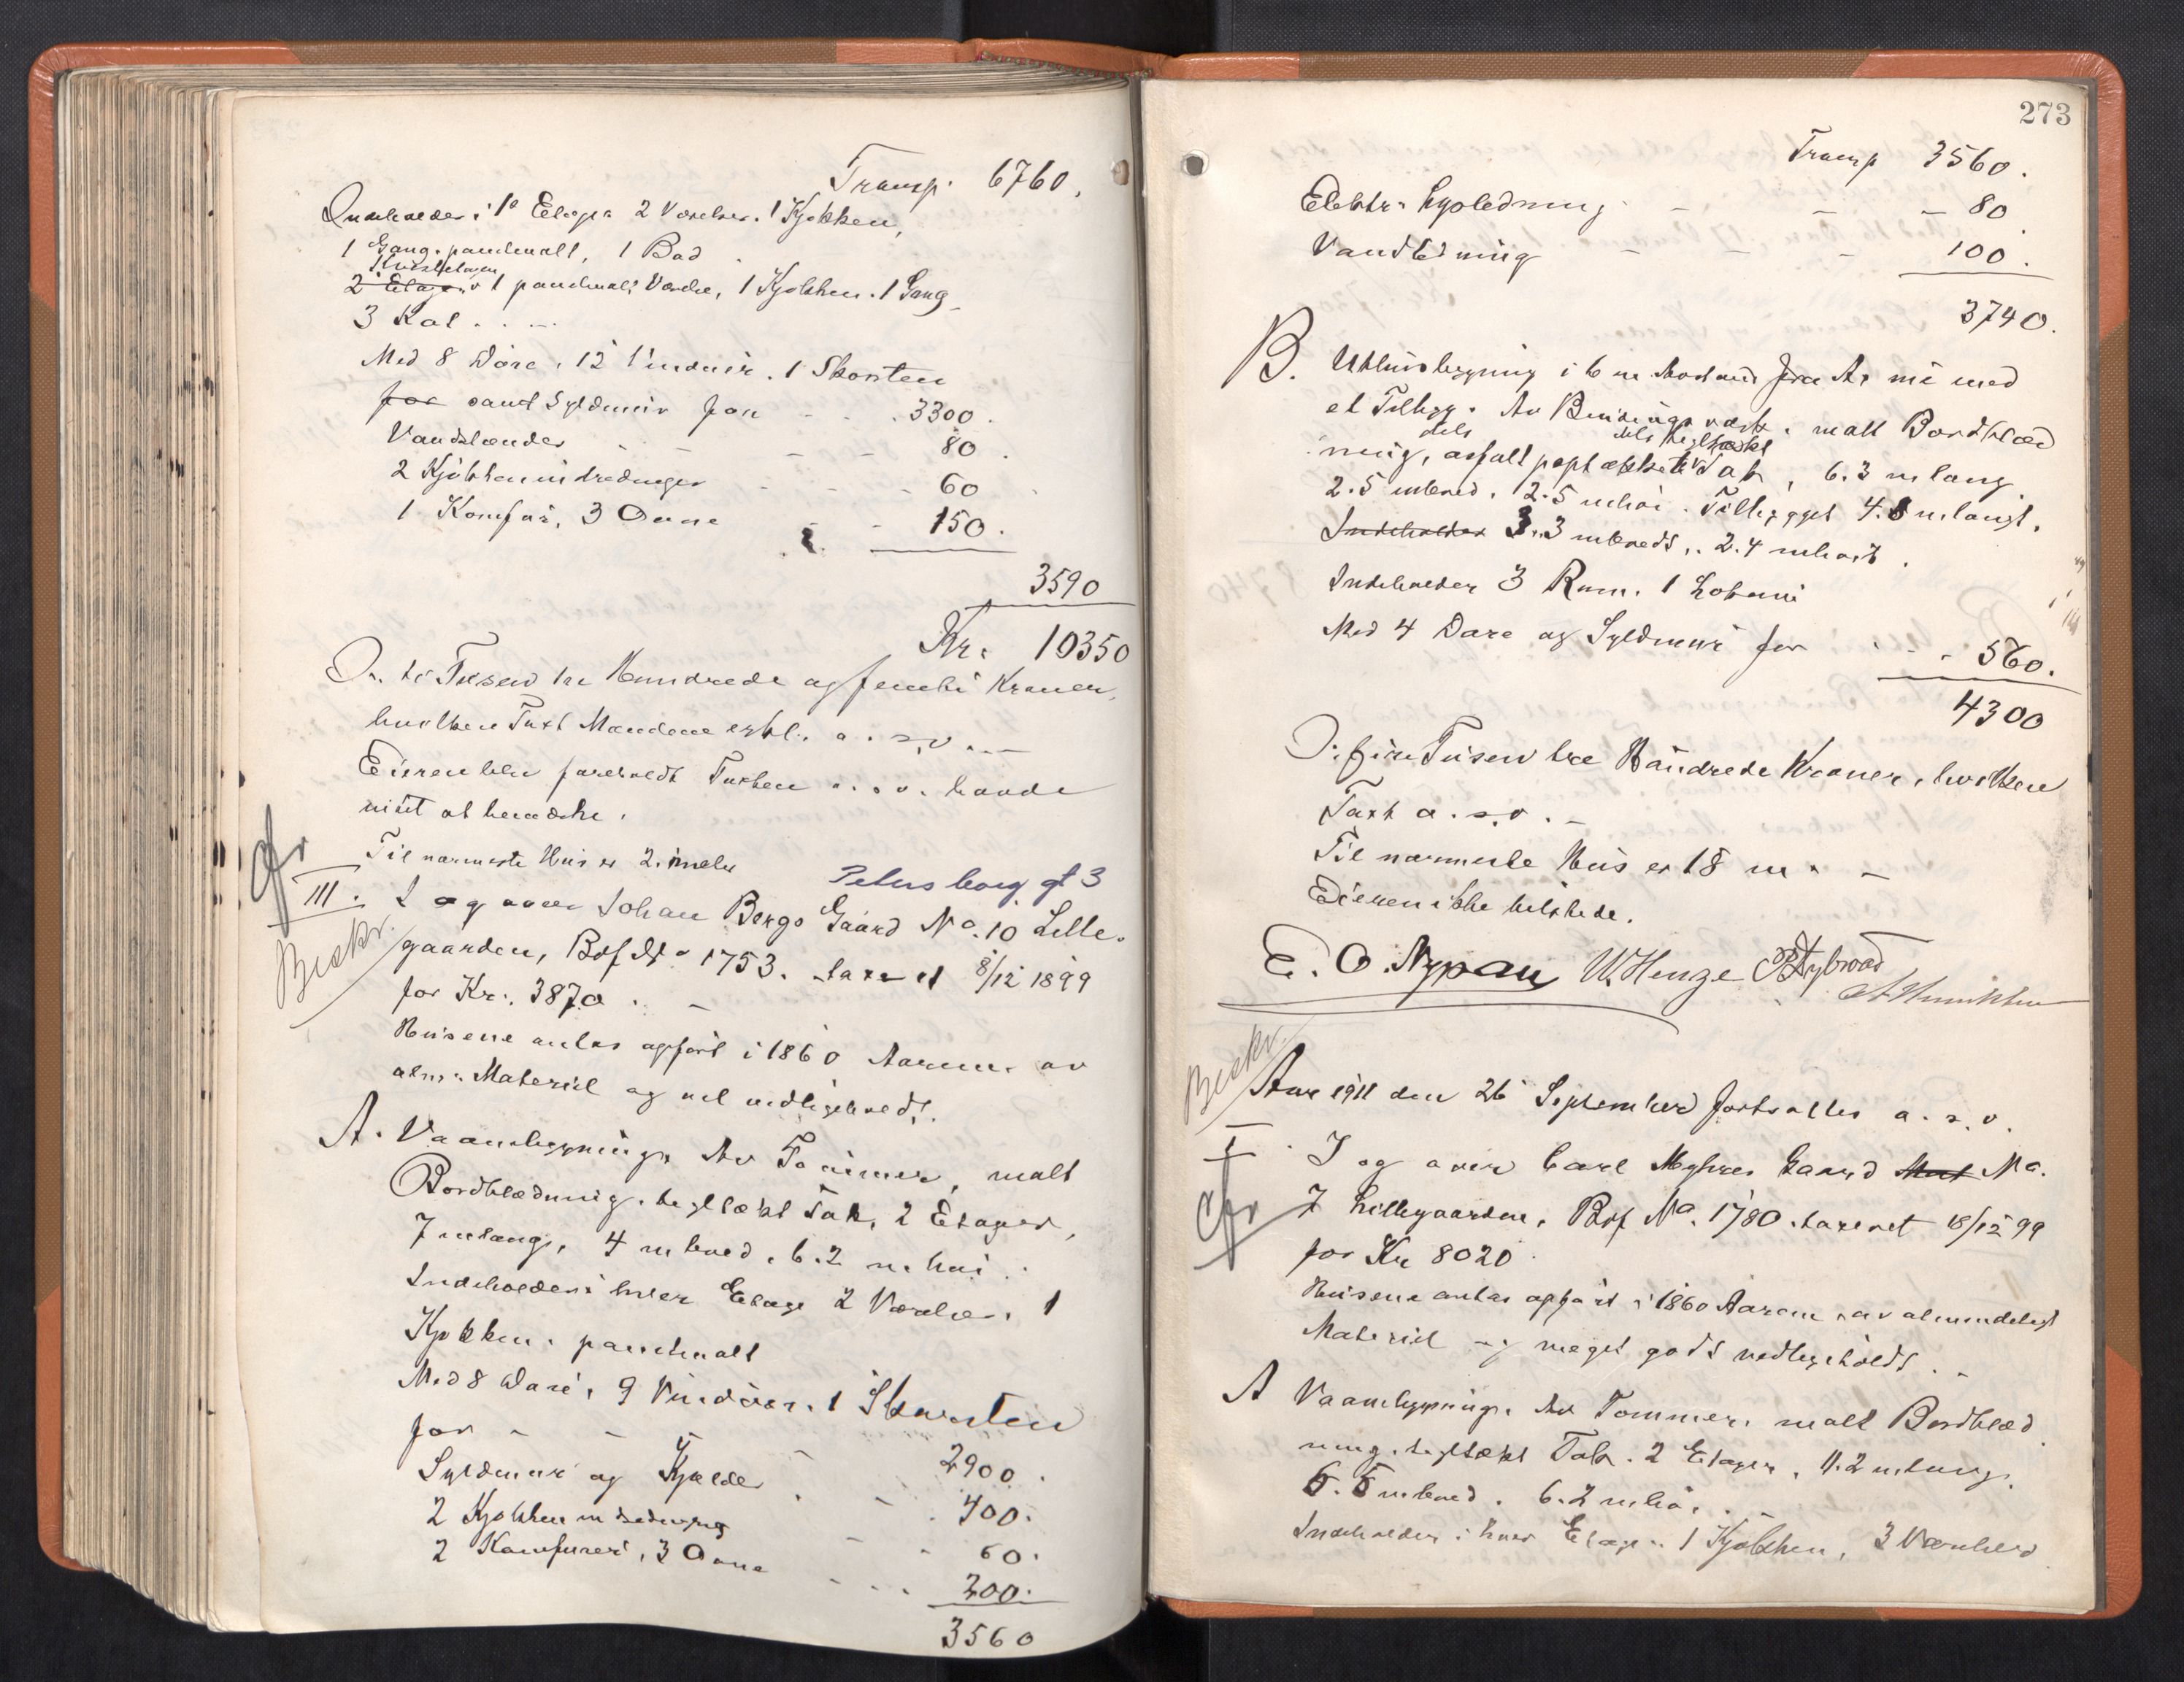 Transp. 6760.
Indeholder i 1e Etage: 2 Værelser. 1 Kjøkken,
1 Gang. panelmalt, 1 Bad
Kvistetagen
2 Etage: 1 panelmalt Værelse, 1 Kjøkken. 1 Gang
3 Kot
Med 8 Døre, 12 Vinduer. 1 Skorsten
for samt Syldmur for - - 3300.
Vandklosder - - 80.
2 Kjøkkenindredninger - - 60
1 Komfur, 3 Ovne - - 150.
3590
Kr. 10350
D. ti Tusen tre Hundrede og femti Kroner,
hvilken Taxt Mændene erkl. a. s. v.
Eieren blev foreholdt Taxten a. s. v. havde
intet at bemærke.
Til nærmeste Hus er 2. meter
Petersborg. gt 3
III. I og over Johan Bergs Gaard No. 10 Lille-
Beskr.
gaarden, Bof Nr. 1753. taxeret 8/12 1899
for Kr. 3870.
Husene antas opført i 1860 Aarene av
alm. Materiel og vel vedligeholdt.
A. Vaaningsbygning. Av Tømmer, malt
Bordklædning, tegltækt Tak, 2 Etager,
7 m lang, 4 m bred, 6.2 m høi.
Indeholder i hver Etage 2 Værelser, 1
Kjøkken. panelmalt
Med 8 Døre, 9 Vinduer, 1 Skorsten
for - - 2900.
Syldmur og Kjælder - 400.
2 Kjøkkenindredning - - 60.
2 Komfurer, 3 Ovne - - 200.
3560
273
Transp 3560.
Elektr. Lysledning - - - 80
Vandledning - - - 100.
3740.
B. Uthusbygning i 6 m Avstand fra A. med
et Tilbygg. Av Bindingsverk. malt Bordklæd
dels dels tegltækt
ning, asfaltpaptækket Tak, 6.3 m lang
2.5 m bred. 2.5 m høi. Tilbygget 4.8 m langt,
Indeholder 3.3 m bredt, 2.4 m høit.
Indeholder 3 Rum. 1 Lokum
Med 4 Døre og Syldmur for - - 560.
4300
D. fire Tusen tre Hundrede Kroner, hvilken
Taxt a. s. v. -
Til nærmeste Hus er 18 m. -
Eieren ikke tilstede.
E. O. Nypan W. Henze
Beskr.
Aar 1911 den 26 September fortsattes a. s. v.
I. I og over Carl Myhres Gaard Mat No.
7 Lillegaarden, Bof No. 1780. taxeret 18/12 99
for Kr 8020
Husene antas opført i 1860 Aarene av almindeligt
Materiel og meget godt vedligeholdt.
A Vaaningsbygning. Av Tømmer, malt Bordklæd
ning, tegltækt Tak. 2 Etager, 11.2 m lang.
6.5 m bred. 6.2 m høi.
Indeholder i hver Etage: 1 Kjøkken, 3 Værelser